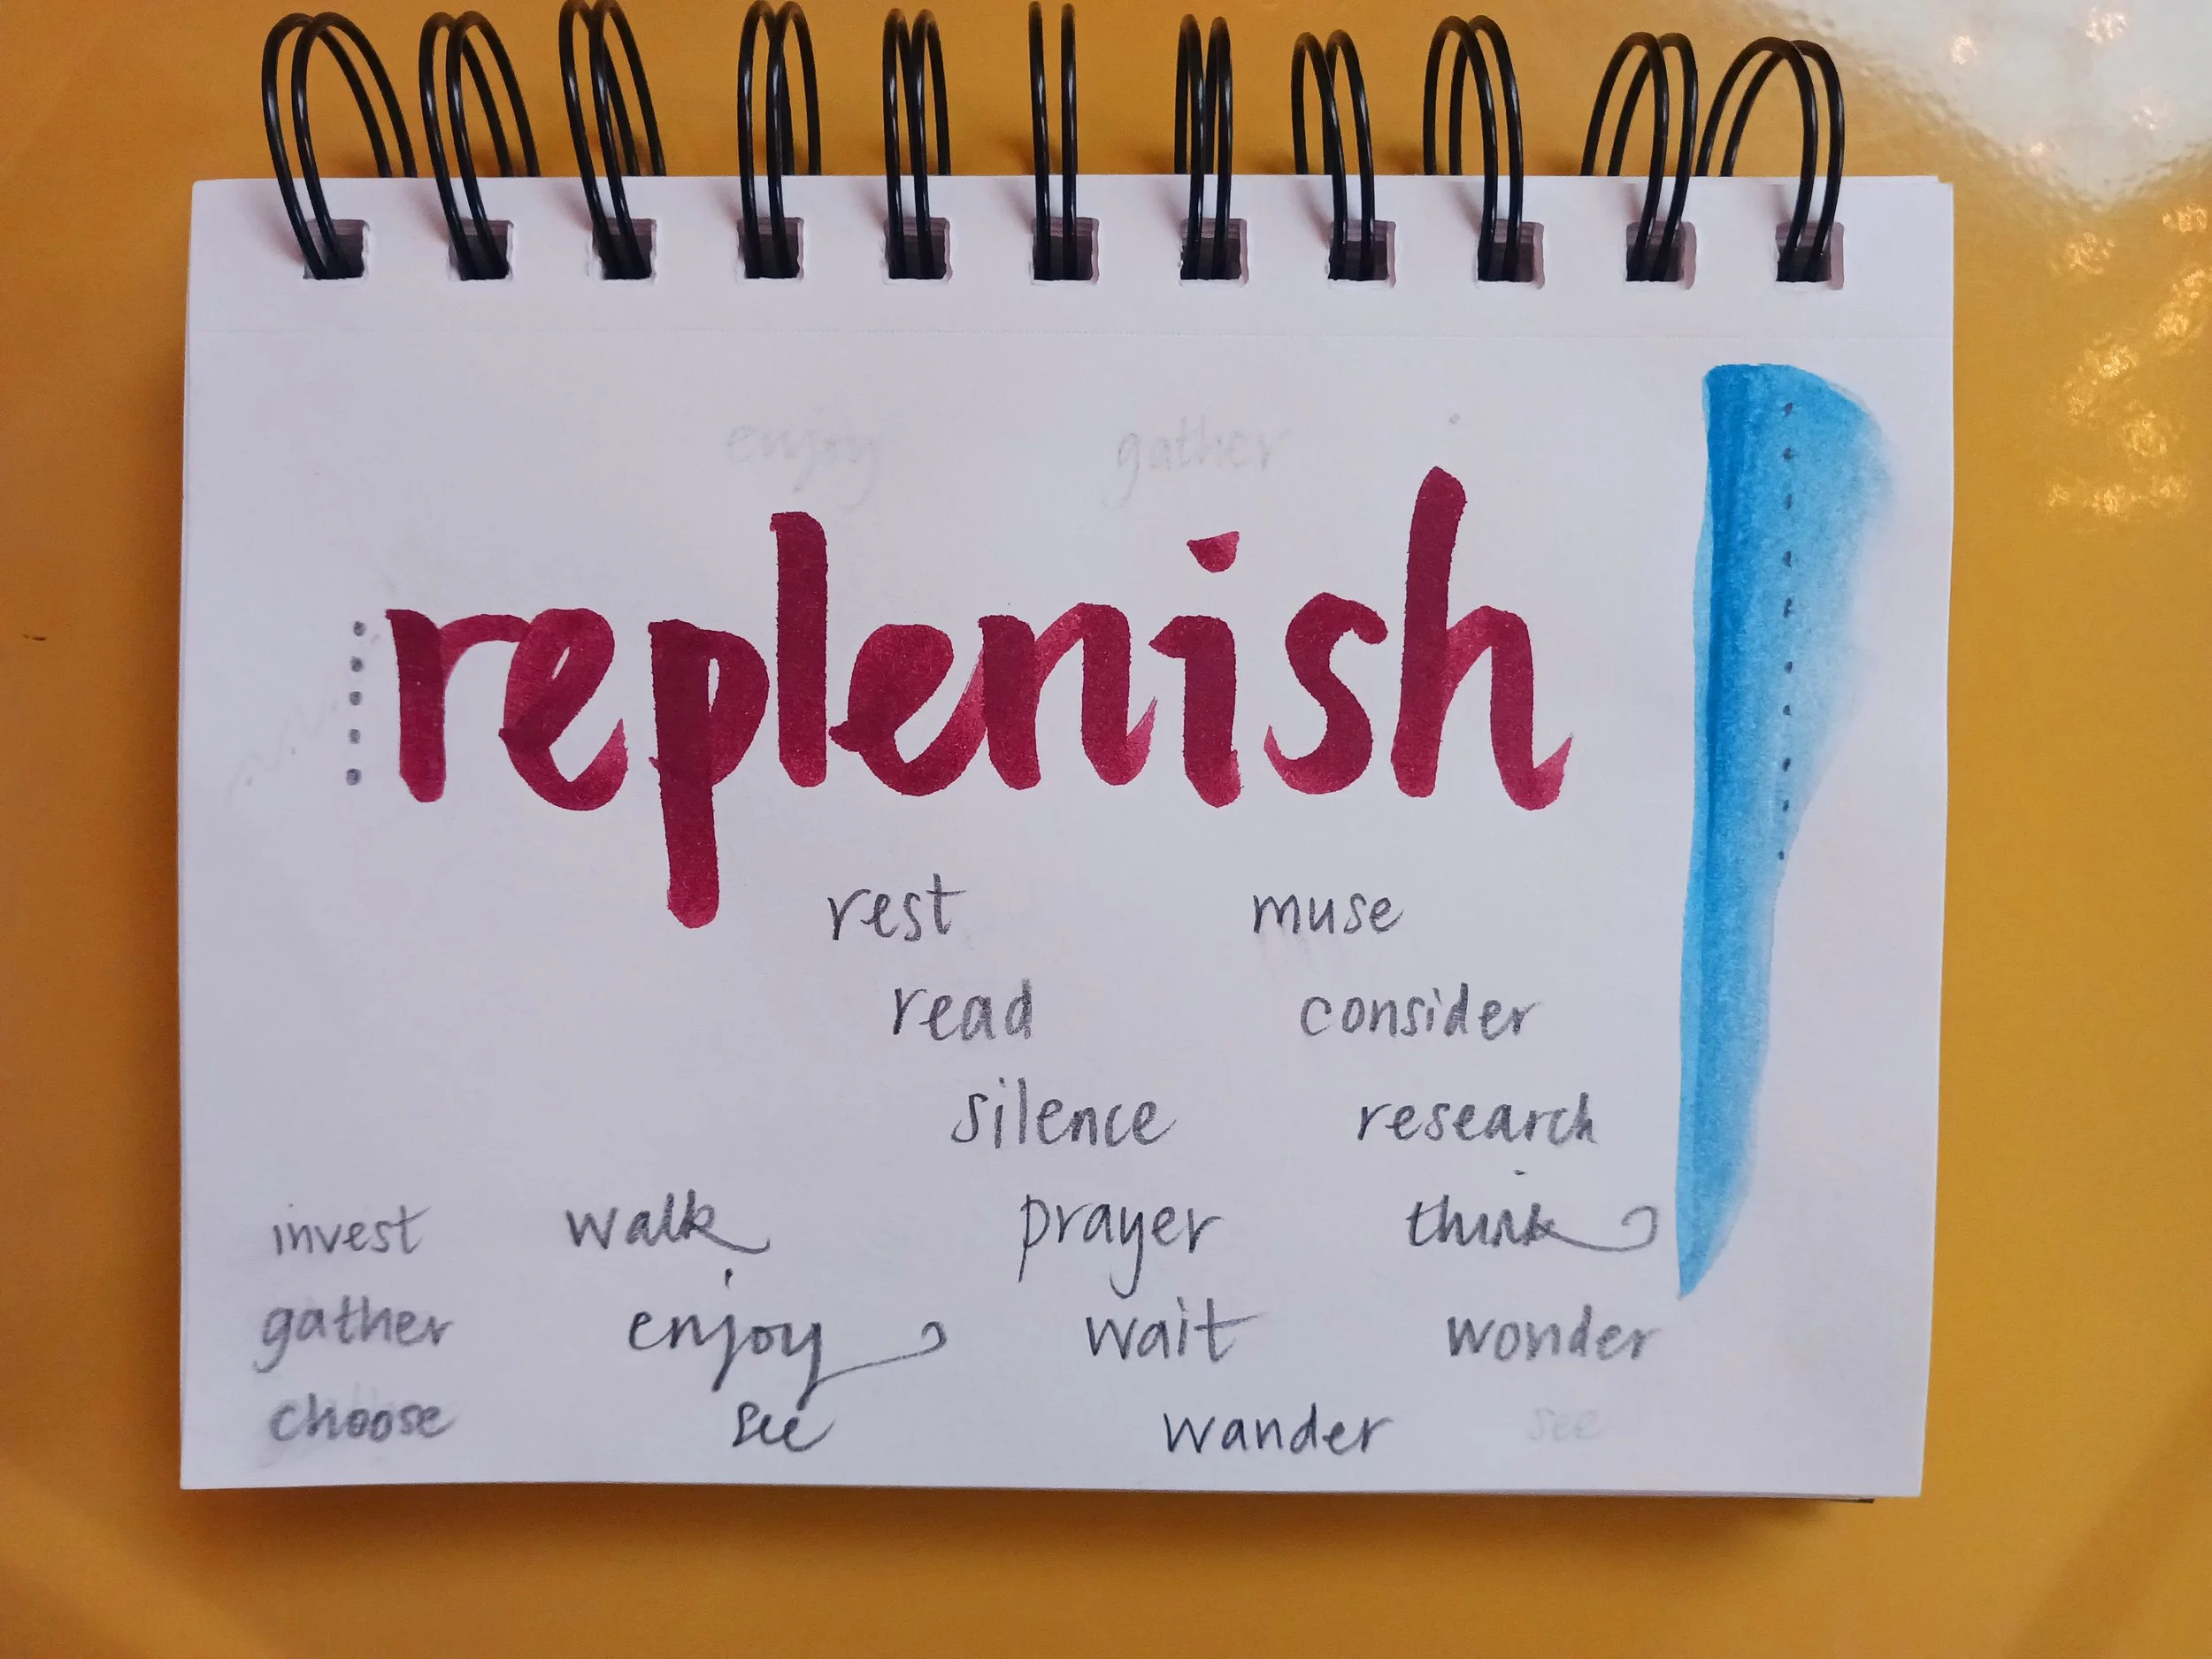 enjoy gather
replenish
rest muse
read consider
silence research
invest walk prayer think
gather enjoy wait wonder
choose see wander see